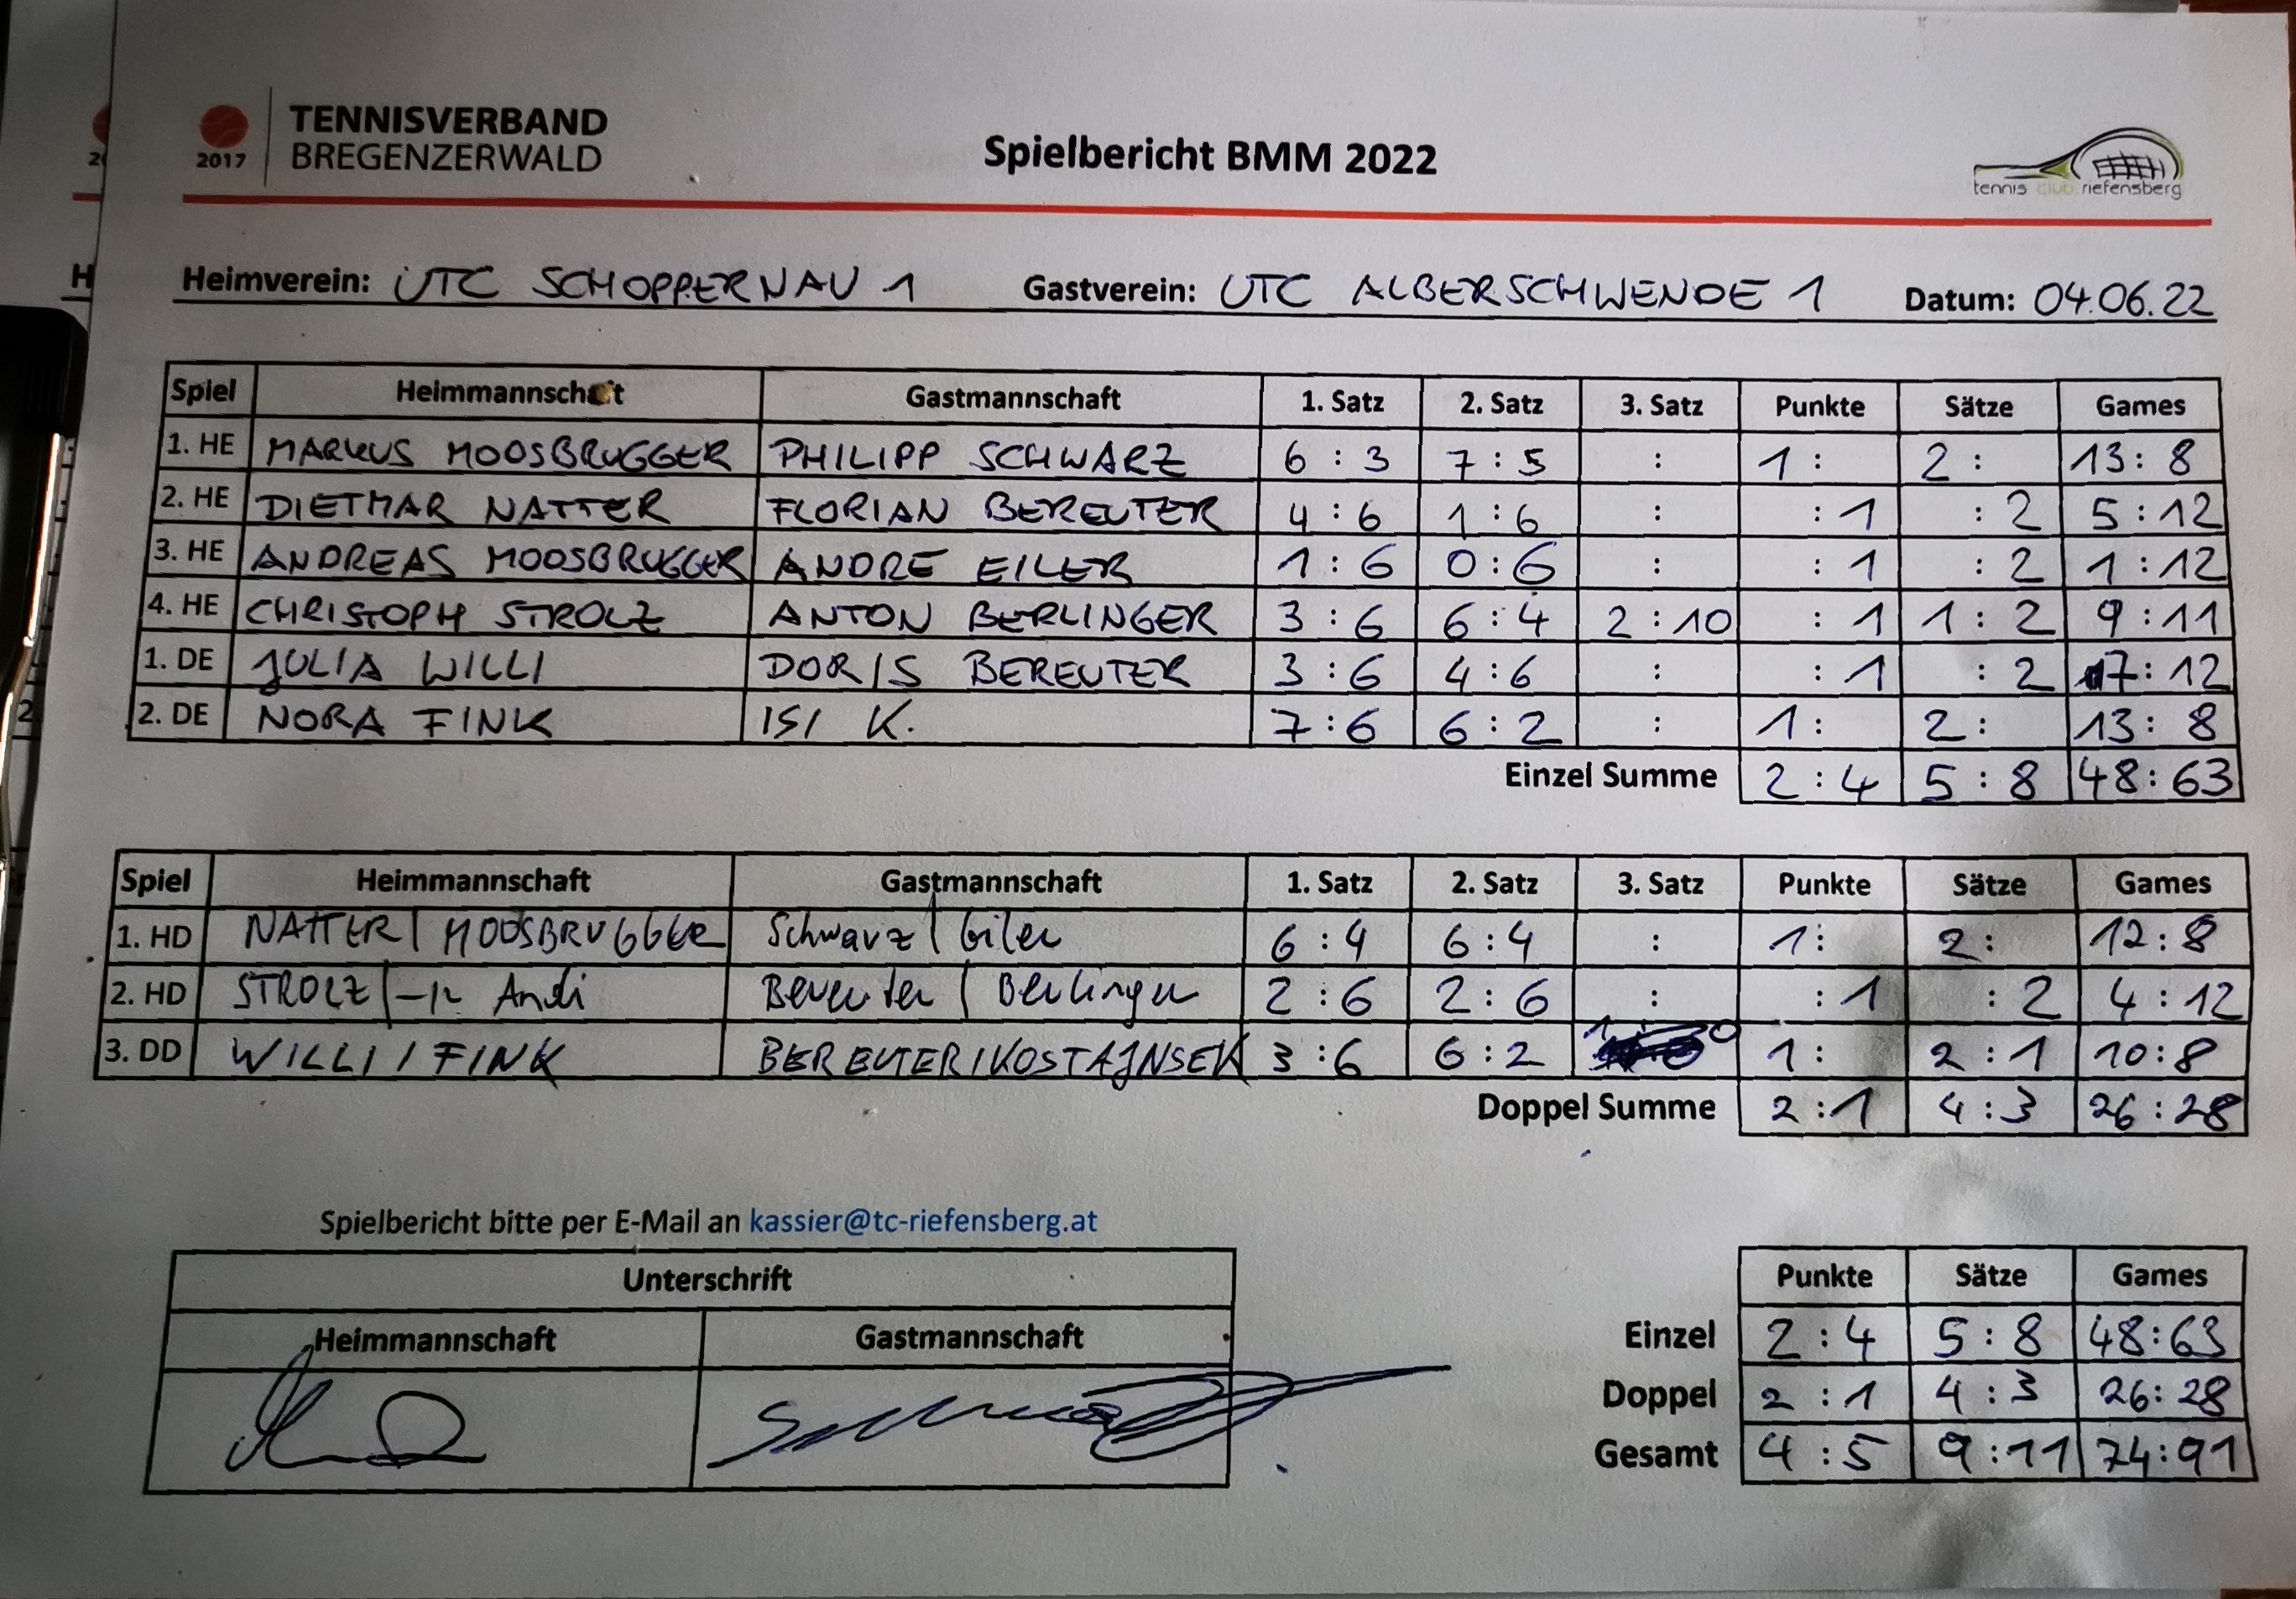 TENNISVERBAND
2017 BREGENZERWALD
Spielbericht BMM 2022
tennis club riefensberg
Heimverein: UTC SCHOPPERNAU 1 Gastverein: UTC ALBERSCHWENDE 1 Datum: 04.06.22
Spiel Heimmannschaft Gastmannschaft 1. Satz 2. Satz 3. Satz Punkte Sätze Games
1. HE MARKUS MOOSBRUGGER PHILIPP SCHWARZ 6 : 3 7 : 5 : 1 : 2 : 13 : 8
2. HE DIETMAR NATTER FLORIAN BEREUTER 4 : 6 1 : 6 : : 1 : 2 5 : 12
3. HE ANDREAS MOOSBRUGGER ANDRE EILER 1 : 6 0 : 6 : : 1 : 2 1 : 12
4. HE CHRISTOPH STROLZ ANTON BERLINGER 3 : 6 6 : 4 2 : 10 : 1 1 : 2 9 : 11
1. DE JULIA WILLI DORIS BEREUTER 3 : 6 4 : 6 : : 1 : 2 7 : 12
2. DE NORA FINK ISI K. 7 : 6 6 : 2 : 1 : 2 : 13 : 8
Einzel Summe 2 : 4 5 : 8 48 : 63
Spiel Heimmannschaft Gastmannschaft 1. Satz 2. Satz 3. Satz Punkte Sätze Games
1. HD NATTER / MOOSBRUGGER Schwarz / Eiler 6 : 4 6 : 4 : 1 : 2 : 12 : 8
2. HD STROLZ / -"- Andi Bereuter / Berlinger 2 : 6 2 : 6 : : 1 : 2 4 : 12
3. DD WILLI / FINK BEREUTER / KOSTAJNSEK 3 : 6 6 : 2 1 : 0 1 : 2 : 1 10 : 8
Doppel Summe 2 : 1 4 : 3 26 : 28
Spielbericht bitte per E-Mail an kassier@tc-riefensberg.at
Unterschrift
Heimmannschaft Gastmannschaft
Punkte Sätze Games
Einzel 2 : 4 5 : 8 48 : 63
Doppel 2 : 1 4 : 3 26 : 28
Gesamt 4 : 5 9 : 11 74 : 91